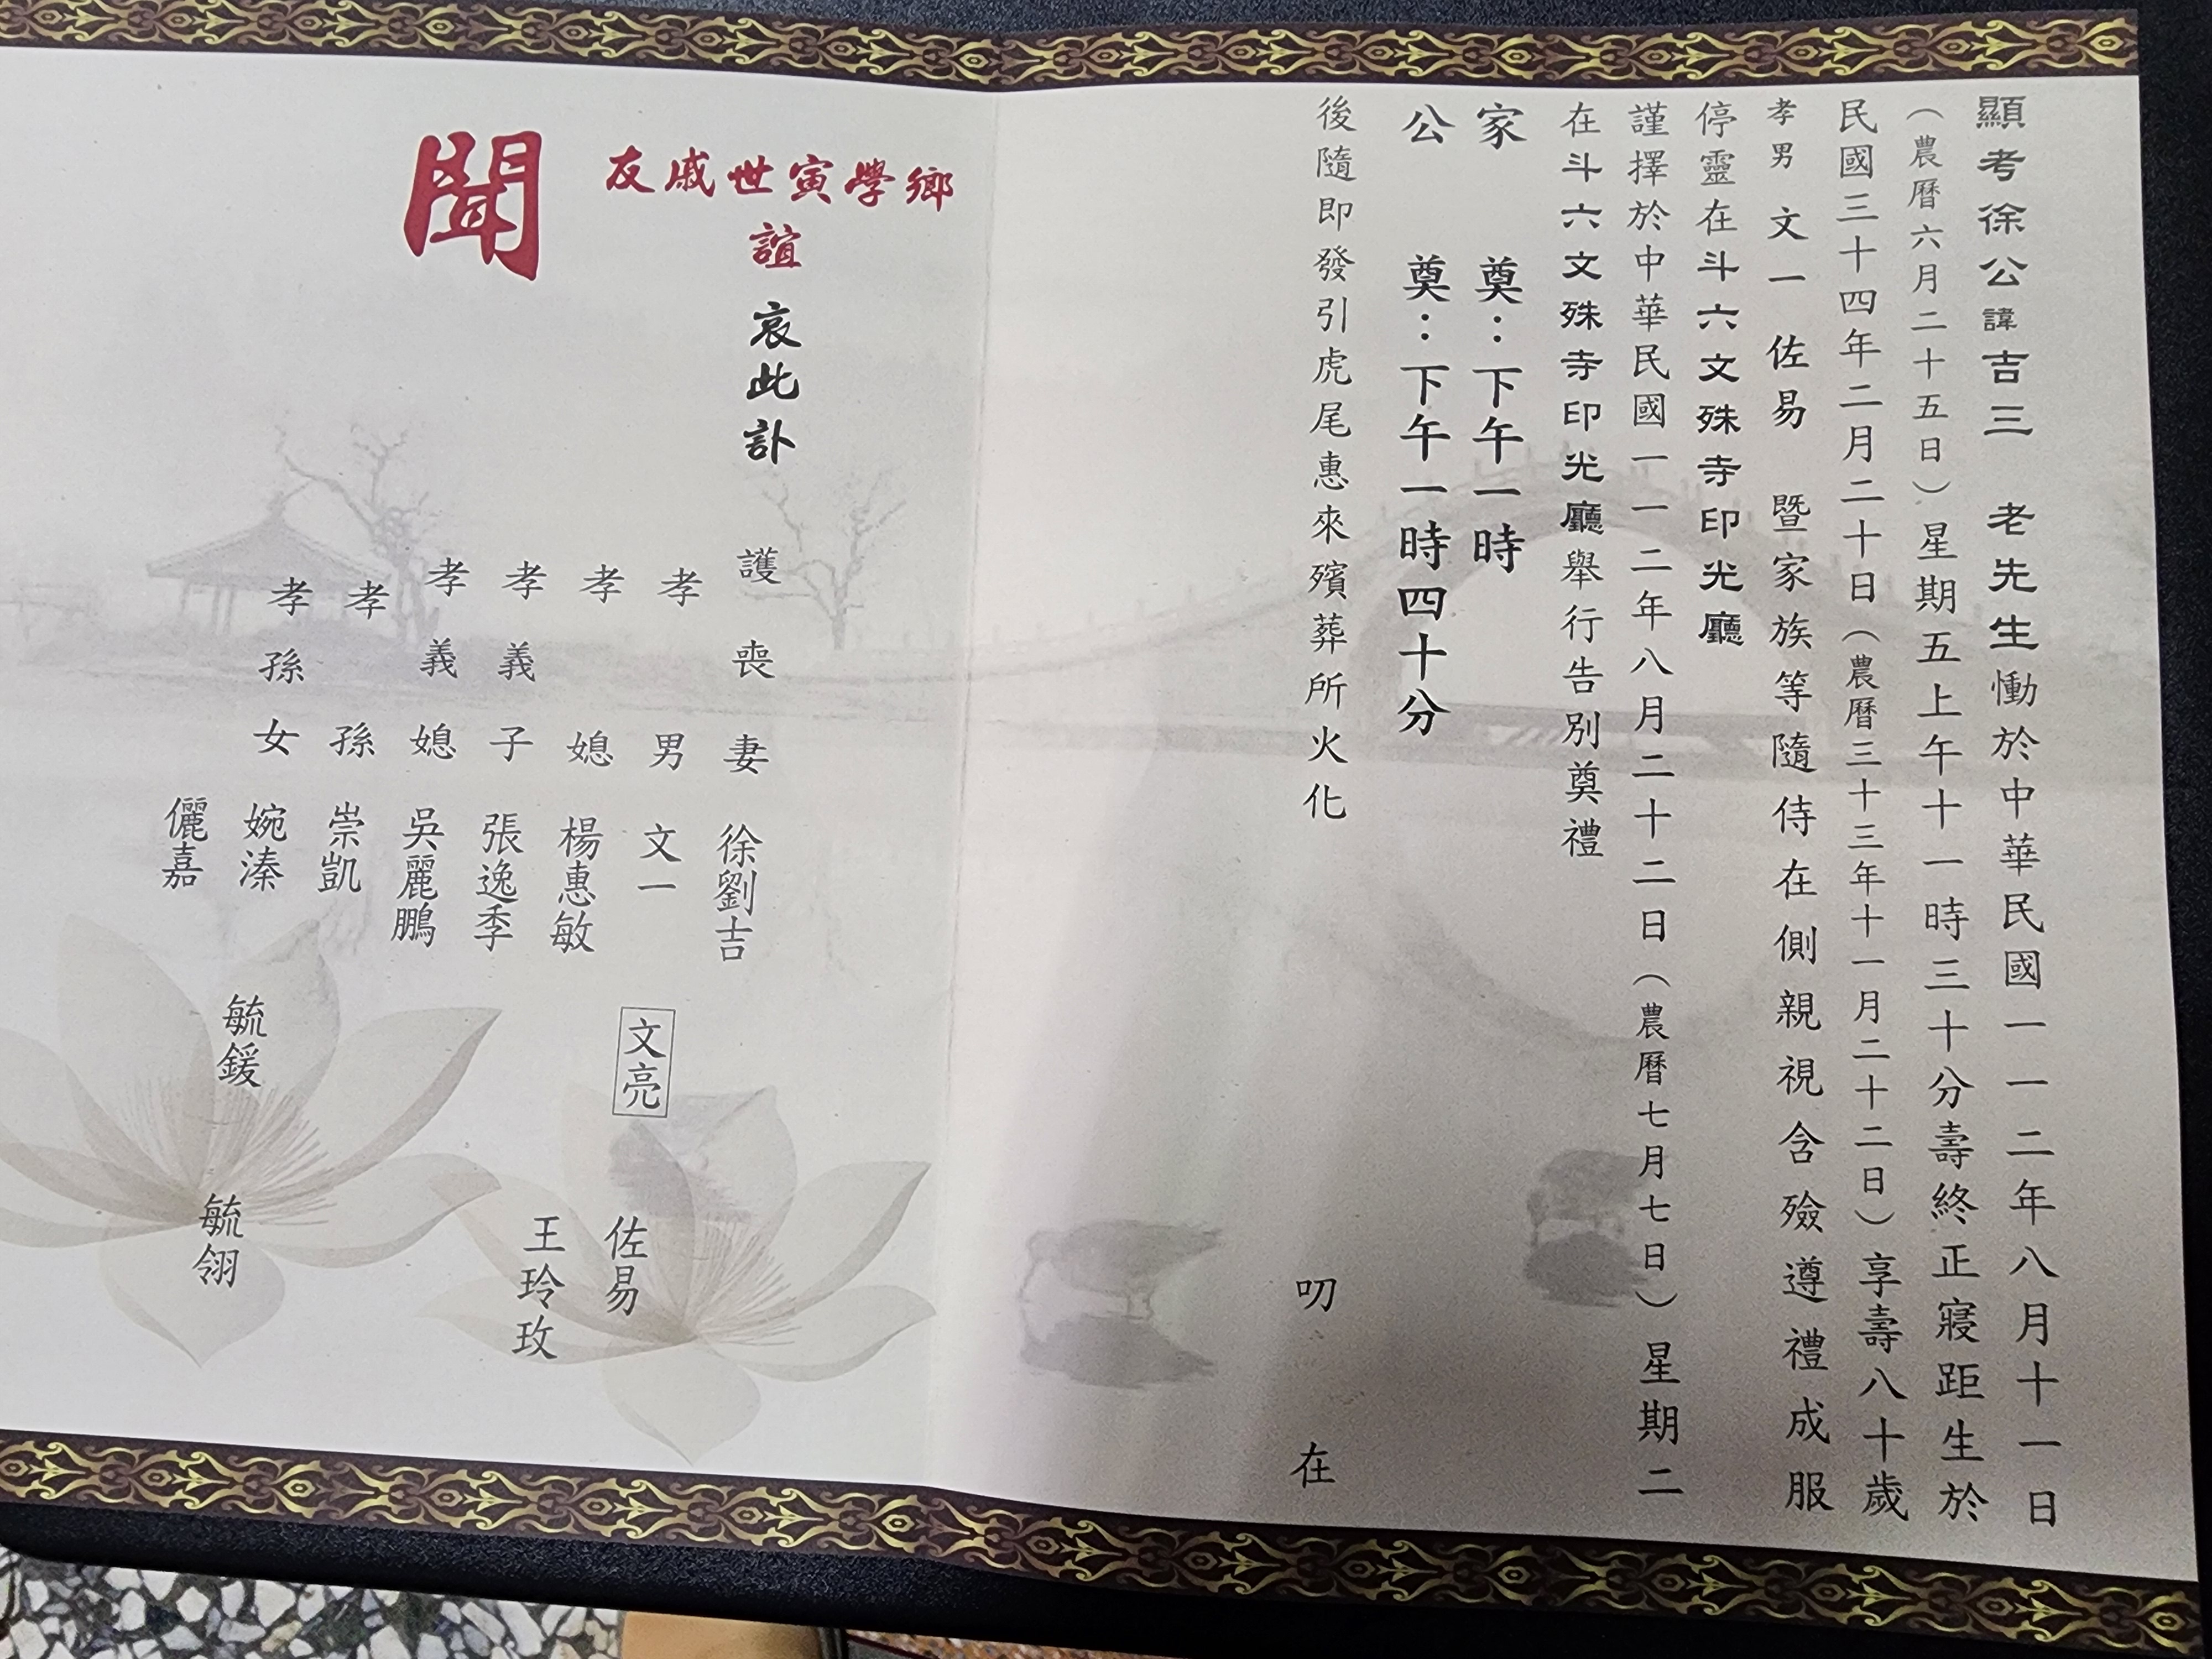 顯考徐公諱吉三 老先生慟於中華民國一一二年八月十一日
（農曆六月二十五日）星期五上午十一時三十分壽終正寢距生於
民國三十四年二月二十日（農曆三十三年十一月二十二日）享壽八十歲
孝男 文一 佐易 暨家族等隨侍在側親視含殮遵禮成服
停靈在斗六文殊寺印光廳
謹擇於中華民國一一二年八月二十二日（農曆七月七日）星期二
在斗六文殊寺印光廳舉行告別奠禮
家 奠：下午一時
公 奠：下午一時四十分
後隨即發引虎尾惠來殯葬所火化
叨 在
鄉學寅世戚友
誼 哀此訃
聞
護喪妻 徐劉吉
孝男 文一 文亮 佐易
孝媳 楊惠敏 王玲玫
孝義子 張逸季
孝義媳 吳麗鵬
孝孫 崇凱
孝孫女 婉溱 毓鍰 毓翎
儷嘉